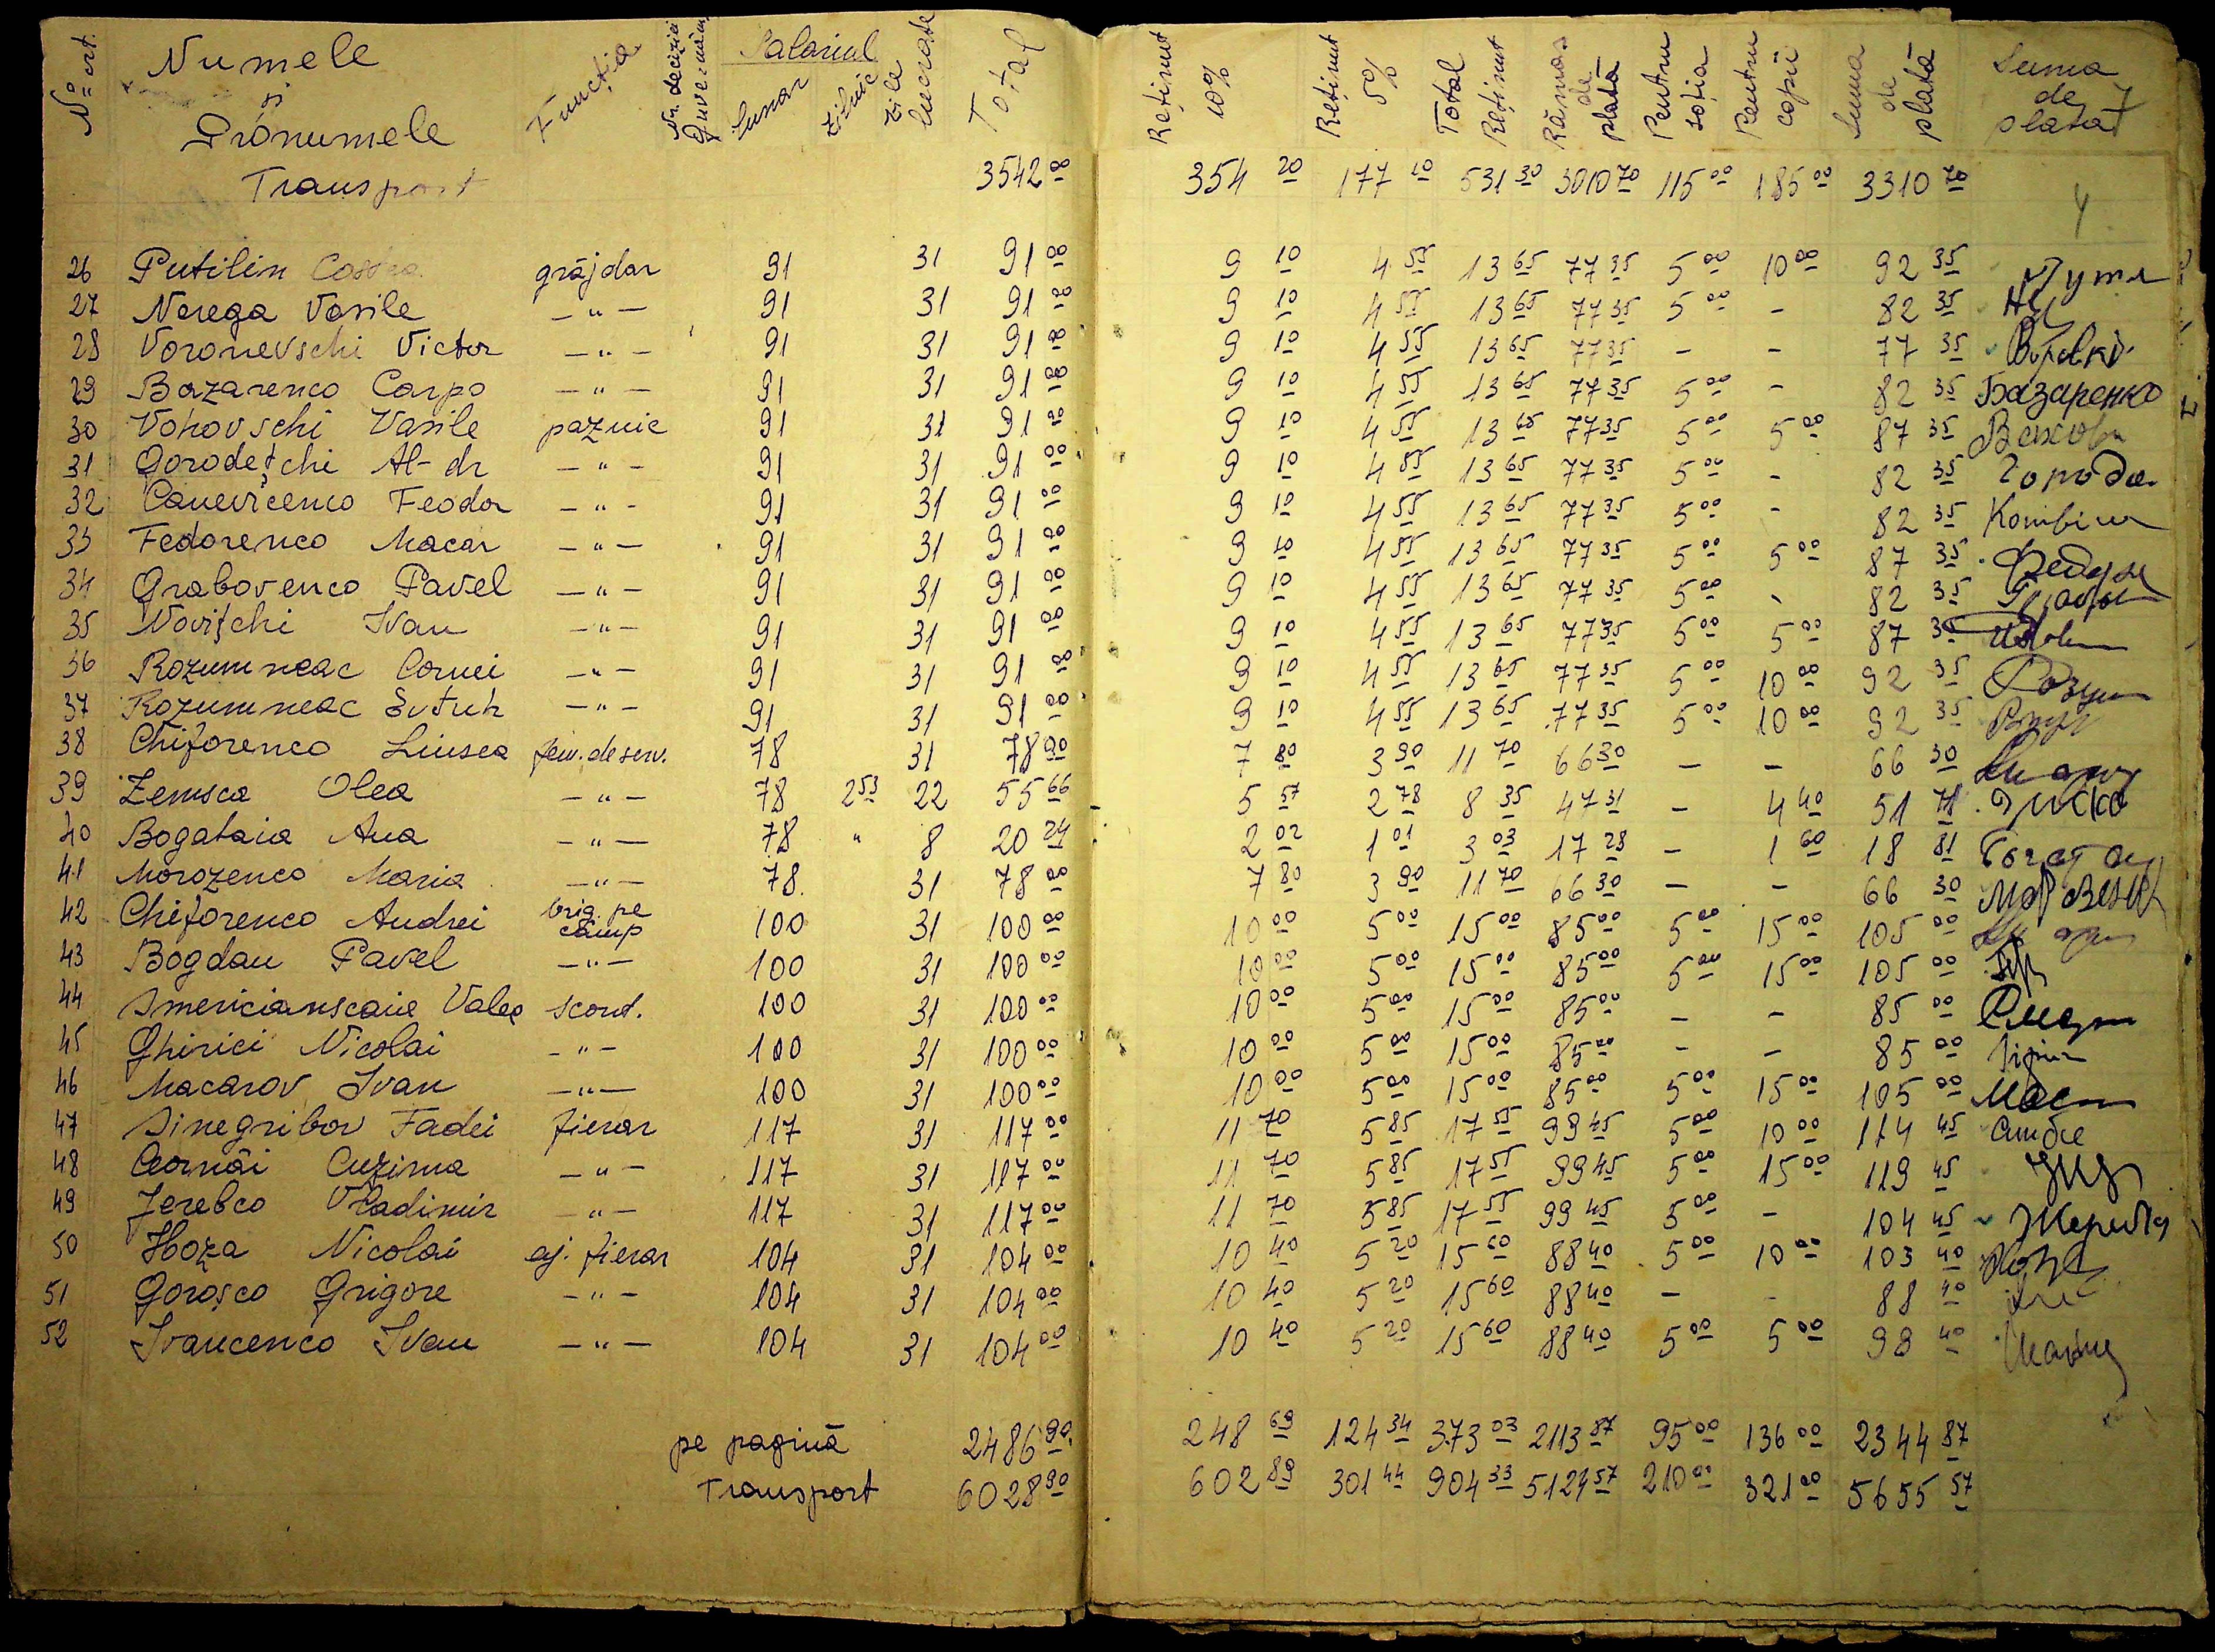 No crt. Numele și Pronumele Funcția Nr. decizia Guvernăm. Salariul lunar zilnic zile lucrate Total Reținut 10% Reținut 5% Total Reținut Rămas de plată Pentru soția Pentru copii Suma de plată Suma de plată
Transport 3542 00 354 20 177 10 531 30 3010 70 115 00 185 00 3310 70
26 Putilin Costea grăjdar 91 31 91 00 9 10 4 55 13 65 77 35 5 00 10 00 92 35
27 Nerega Vasile — " — 91 31 91 00 9 10 4 55 13 65 77 35 5 00 - 82 35
28 Voronevschi Victor — " — 91 31 91 00 9 10 4 55 13 65 77 35 - - 77 35
29 Bazarenco Carpo — " — 91 31 91 00 9 10 4 55 13 65 77 35 5 00 - 82 35 Базаренко
30 Vohovschi Vasile paznic 91 31 91 00 9 10 4 55 13 65 77 35 5 00 5 00 87 35
31 Gorodețchi Al-dr — " — 91 31 91 00 9 10 4 55 13 65 77 35 5 00 - 82 35
32 Canevicenco Feodor — " — 91 31 91 00 9 10 4 55 13 65 77 35 5 00 - 82 35
33 Fedorenco Macar — " — 91 31 91 00 9 10 4 55 13 65 77 35 5 00 5 00 87 35
34 Grabovenco Pavel — " — 91 31 91 00 9 10 4 55 13 65 77 35 5 00 - 82 35
35 Novițchi Ivan — " — 91 31 91 00 9 10 4 55 13 65 77 35 5 00 5 00 87 35
36 Rozumneac Cornei — " — 91 31 91 00 9 10 4 55 13 65 77 35 5 00 10 00 92 35
37 Rozumneac Evtuh — " — 91 31 91 00 9 10 4 55 13 65 77 35 5 00 10 00 92 35
38 Chiforenco Liusea fem. de serv. 78 31 78 00 7 80 3 90 11 70 66 30 - - 66 30
39 Zemsca Olea — " — 78 2 53 22 55 66 5 57 2 78 8 35 47 31 - 4 40 51 71
40 Bogataia Ana — " — 78 " 8 20 24 2 02 1 01 3 03 17 28 - 1 60 18 81
41 Morozenco Maria — " — 78 31 78 00 7 80 3 90 11 70 66 30 - - 66 30
42 Chiforenco Andrei brig. pe câmp 100 31 100 00 10 00 5 00 15 00 85 00 5 00 15 00 105 00
43 Bogdan Pavel — " — 100 31 100 00 10 00 5 00 15 00 85 00 5 00 15 00 105 00
44 Smericianscaie Valea scont. 100 31 100 00 10 00 5 00 15 00 85 00 - - 85 00
45 Ghirici Nicolai — " — 100 31 100 00 10 00 5 00 15 00 85 00 - - 85 00
46 Macarov Ivan — " — 100 31 100 00 10 00 5 00 15 00 85 00 5 00 15 00 105 00
47 Sinegribov Fadei fierar 117 31 117 00 11 70 5 85 17 55 99 45 5 00 10 00 114 45
48 Cuzima — " — 117 31 117 00 11 70 5 85 17 55 99 45 5 00 15 00 119 45
49 Jerebco Vladimir — " — 117 31 117 00 11 70 5 85 17 55 99 45 5 00 - 104 45
50 Hoza Nicolai aj. fierar 104 31 104 00 10 40 5 20 15 60 88 40 5 00 10 00 103 40
51 Goroșco Grigore — " — 104 31 104 00 10 40 5 20 15 60 88 40 - - 88 40
52 Ivancenco Ivan — " — 104 31 104 00 10 40 5 20 15 60 88 40 5 00 5 00 98 40
pe pagină 2486 90 248 69 124 34 373 03 2113 87 95 00 136 00 2344 87
Transport 6028 90 602 89 301 44 904 33 5124 57 210 00 321 00 5655 57